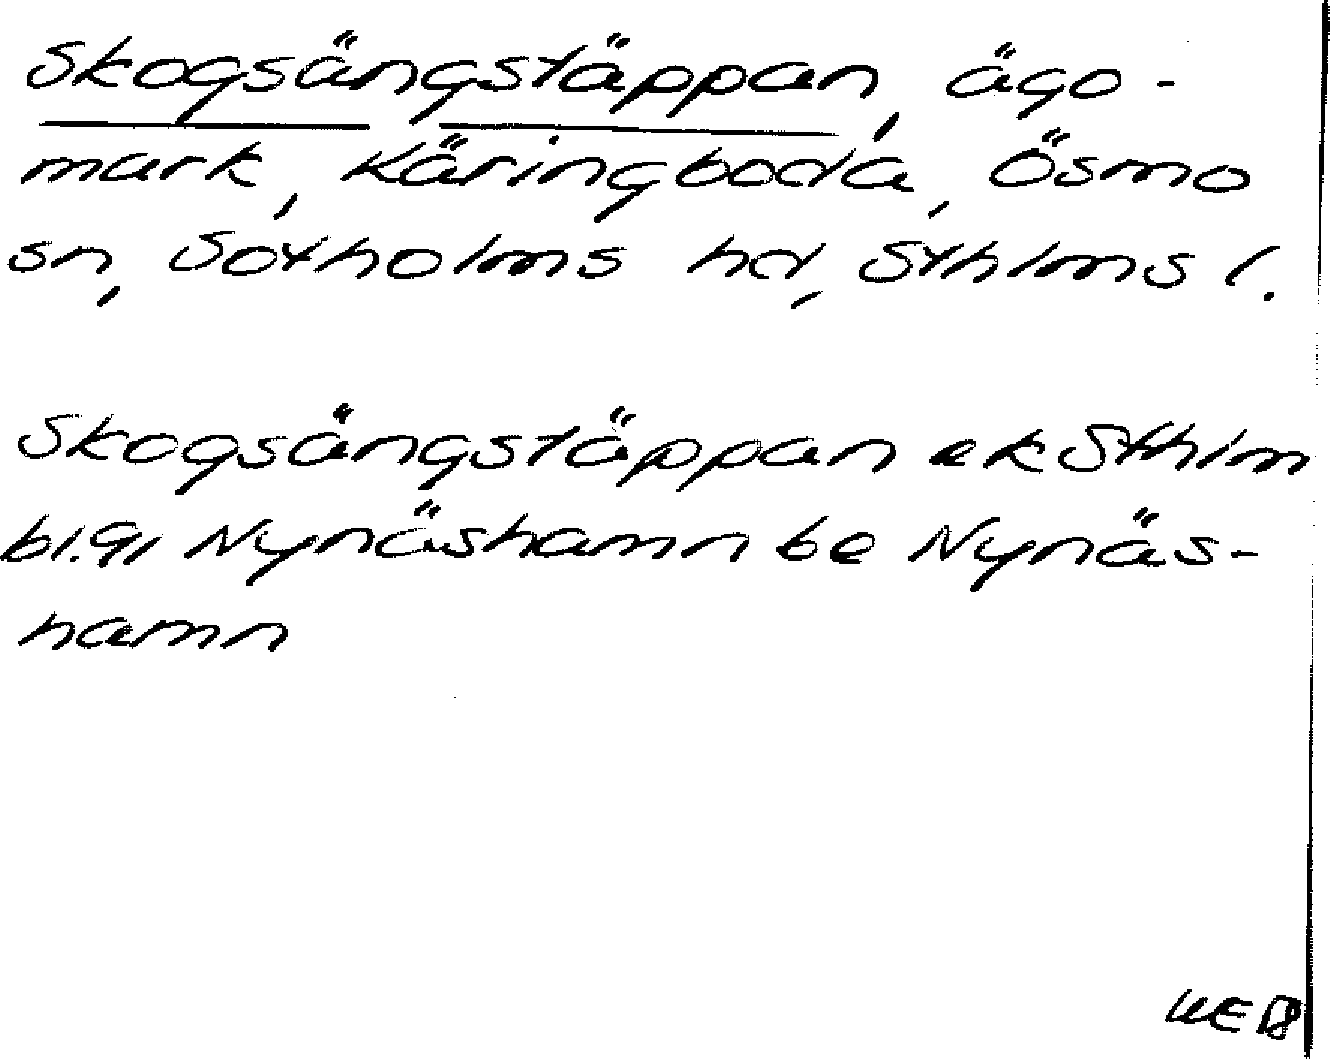 Skogsängstäppan, ägo-
mark, Käringboda, Ösmo
sn, Sotholms hd, Sthlms l.
Skogsängstäppan ek Sthlm
bl. 91 Nynäshamn be Nynäs-
hamn